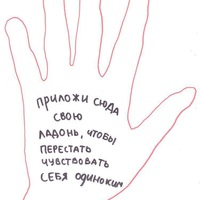 ПРИЛОЖИ СЮДА
СВОЮ
ЛАДОНЬ, ЧТОБЫ
ПЕРЕСТАТЬ
ЧУВСТВОВАТЬ
СЕБЯ ОДИНОКИМ